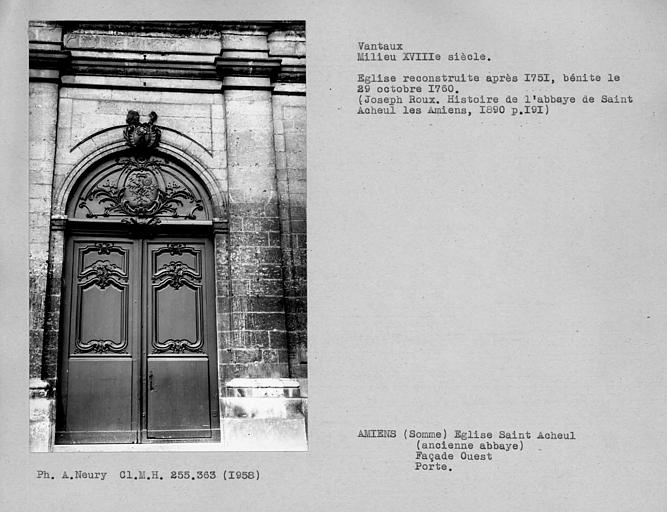 Vantaux
Milieu XVIIIe siècle.
Eglise reconstruite après I75I, bénite le
29 octobre I760.
(Joseph Roux. Histoire de l'abbaye de Saint
Acheul les Amiens, I890 p.I9I)
AMIENS (Somme) Eglise Saint Acheul
(ancienne abbaye)
Façade Ouest
Porte.
Ph. A.Neury Cl.M.H. 255.363 (I958)